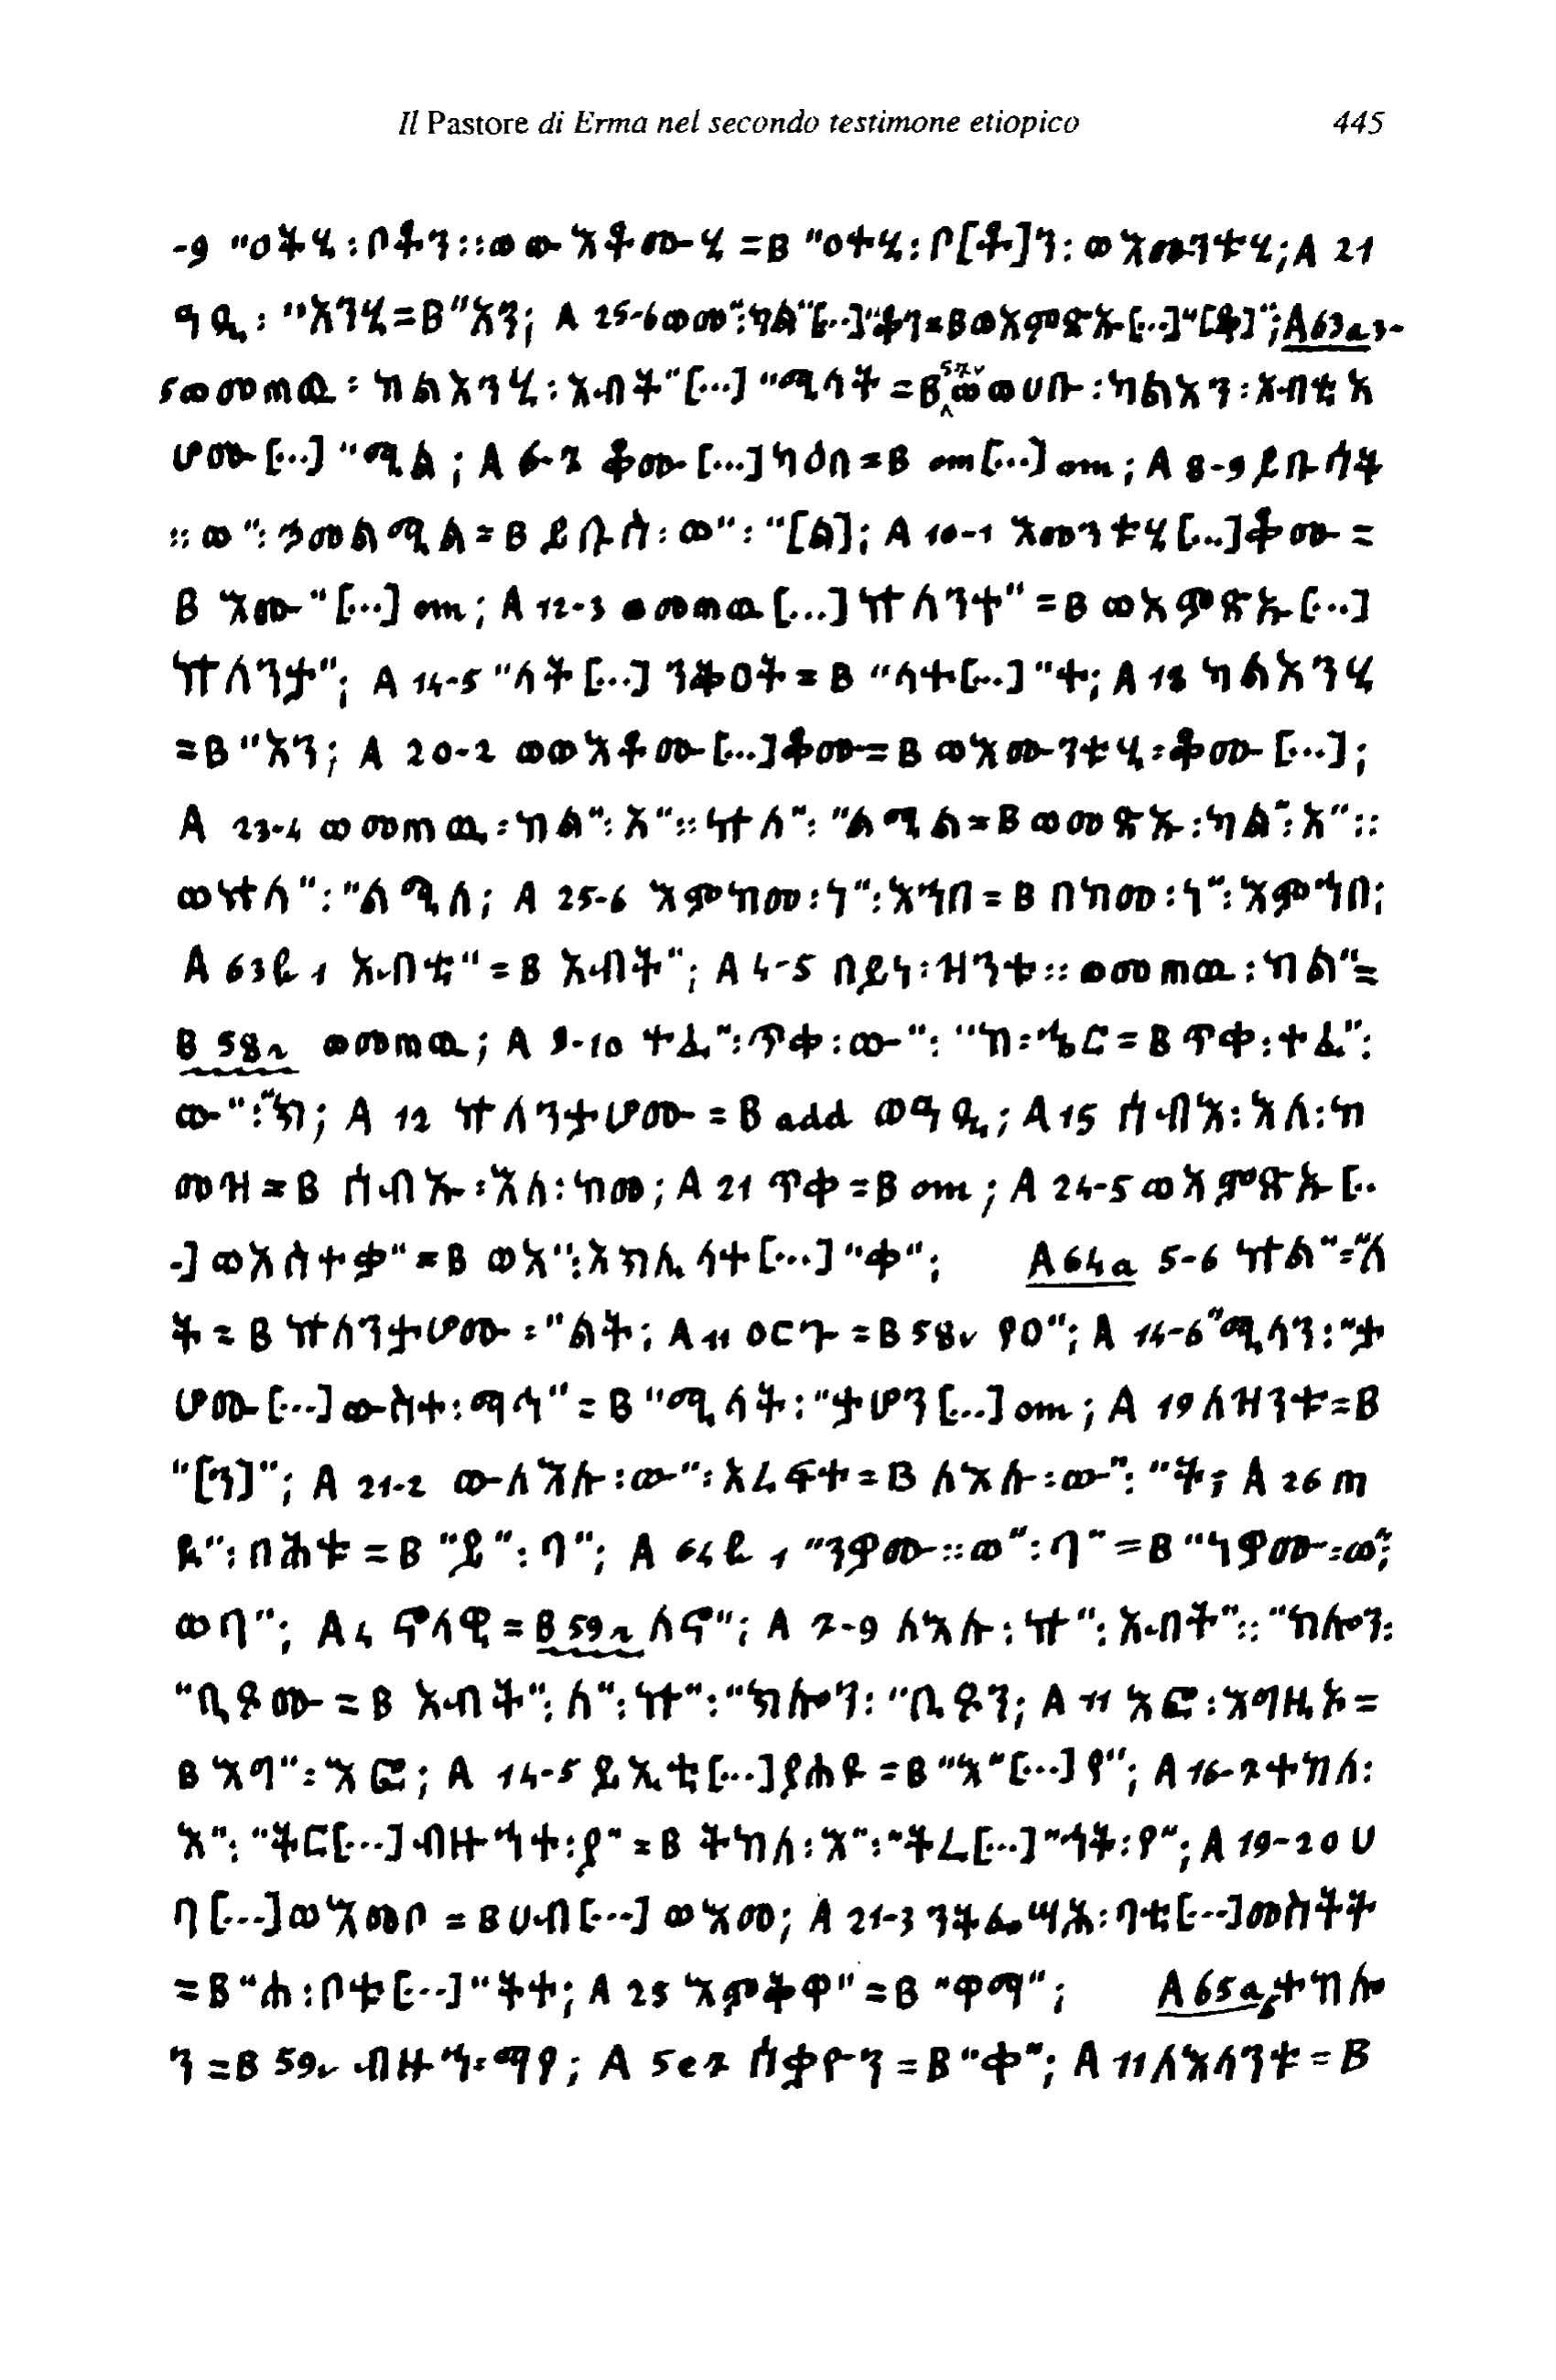 Il Pastore di Erma nel secondo testimone etiopico 445
-9 "ዐትሂ : በቶን :: ወ ው እቶሙ-ሂ = B "ዐተሂ : በ[ቶ]ን : ወ እሙንቱሂ; A 21
ዓዲ : "እንሂ = B "እን; A 25-6 ወመ" : ካል" [...] = B ወእምጽኡ [...] "[ቆ]"; A 63a 3-
5 ወመጠዉ : ካልእንሂ : አብት" [...] "ሚላት = B 57v ወ ወሀቡ : ካልእን : አብቲአ
ሆሙ [...] "ሚል ; A 6-7 ቆሙ [...] ካዕበ = B om [...] om ; A 8-9 ይቡሳት
:: ወ" : = B ይቡሰ : ወ" : "[ል]; A 10-1 እሙንቱሂ [...] ቆሙ =
B እሙ" [...] om ; A 12-3 ወመጠዉ [...] ኵለንተ" = B ወእምጽኡ [...]
ኵለንታ"; A 14-5 "ላት [...] ንቅዐት = B "ላተ [...] "ተ; A 18 ካልእንሂ
= B "እን; A 20-2 ወወእቶሙ [...] ቆሙ = B ወእሙንቱሂ : ቆሙ [...] ;
A 23-4 ወመጠዉ : ካል" : አ" :: ኵለ" : "ልሚል = B ወመጽኡ : ካል" : አ" ::
ወኵለ" : "ለሚለ; A 25-6 እምከመ : ነ" : እኀበ = B በከመ : ነ" : እምኀበ;
A 63b 1 አብቲ" = B አብት"; A 4-5 በይነ : ዝንቱ :: ወመጠዉ : ካል" =
B 58r ወመጠዉ ; A 9-10 ተፈ" : ጥቀ : ው" : "ከ : ኄር = B ጥቀ : ተፈ" :
ው" : "ክ; A 12 ኵለንታሆሙ = B add ወዓዲ ; A 15 ሰብእ : እለ : ከ
መዝ = B ሰብኡ : እለ : ከመ ; A 21 ጥቀ = B om ; A 24-5 ወእምጽኡ [..
.] ወአስተቃ" = B ወአ" : አክሊላተ [...] "ቀ"; A 64a 5-6 ኵል" : "ለ
ት = B ኵለንታሆሙ : "ልት; A 11 ዐርጉ = B 58v የዐ"; A 14-6 "ሚላን : "ታ
ሆሙ [...] ውስተ : ማኅ" = B "ሚላት : "ታሆን [...] om ; A 19 ለዝንቱ = B
"[ን]"; A 21-2 ውለእሉ : ው" : አረፍተ = B ለእሉ : ው" : "ት; A 26 ጠ
ዪ" : በሕቱ = B "ይ" : ባ"; A 64b 1 "ንዋሙ :: ወ" : ባ" = B "ነዋሙ : ወ" :
ወባ"; A 4 ኖላዊ = B 59r ለኖ"; A 7-9 ለእሉ : ኵ" : አብት" :: "ክሎን :
"ቢዮሙ = B አብት" : ለ" : ኵ" : "ክሎን : "ቢዮን; A 11 እፎ : እግዚኦ =
B እግ" : እፎ ; A 14-5 ይእቲ [...] የሐዩ = B "እ" [...] የ"; A 16-7 ተከለ :
እ" : "ትር [...] ብዙኀተ : ይ" = B ትከለ : እ" : "ትረ [...] "ኅት : የ"; A 19-20 ሀ
ባ [...] ወእመቦ = B ሀብ [...] ወእመ; A 21-3 ንትፌሣሕ : ባቲ [...] መስትት
= B "ሐ : ቦቱ [...] "ትተ; A 25 እምቅዋ" = B "ዋማ"; A 65a 6 ተከሎ
ን = B 59v ብዙኅ : ማየ ; A 5 e 7 ሰቃዮን = B "ቀ"; A 11 ለእለንቱ = B